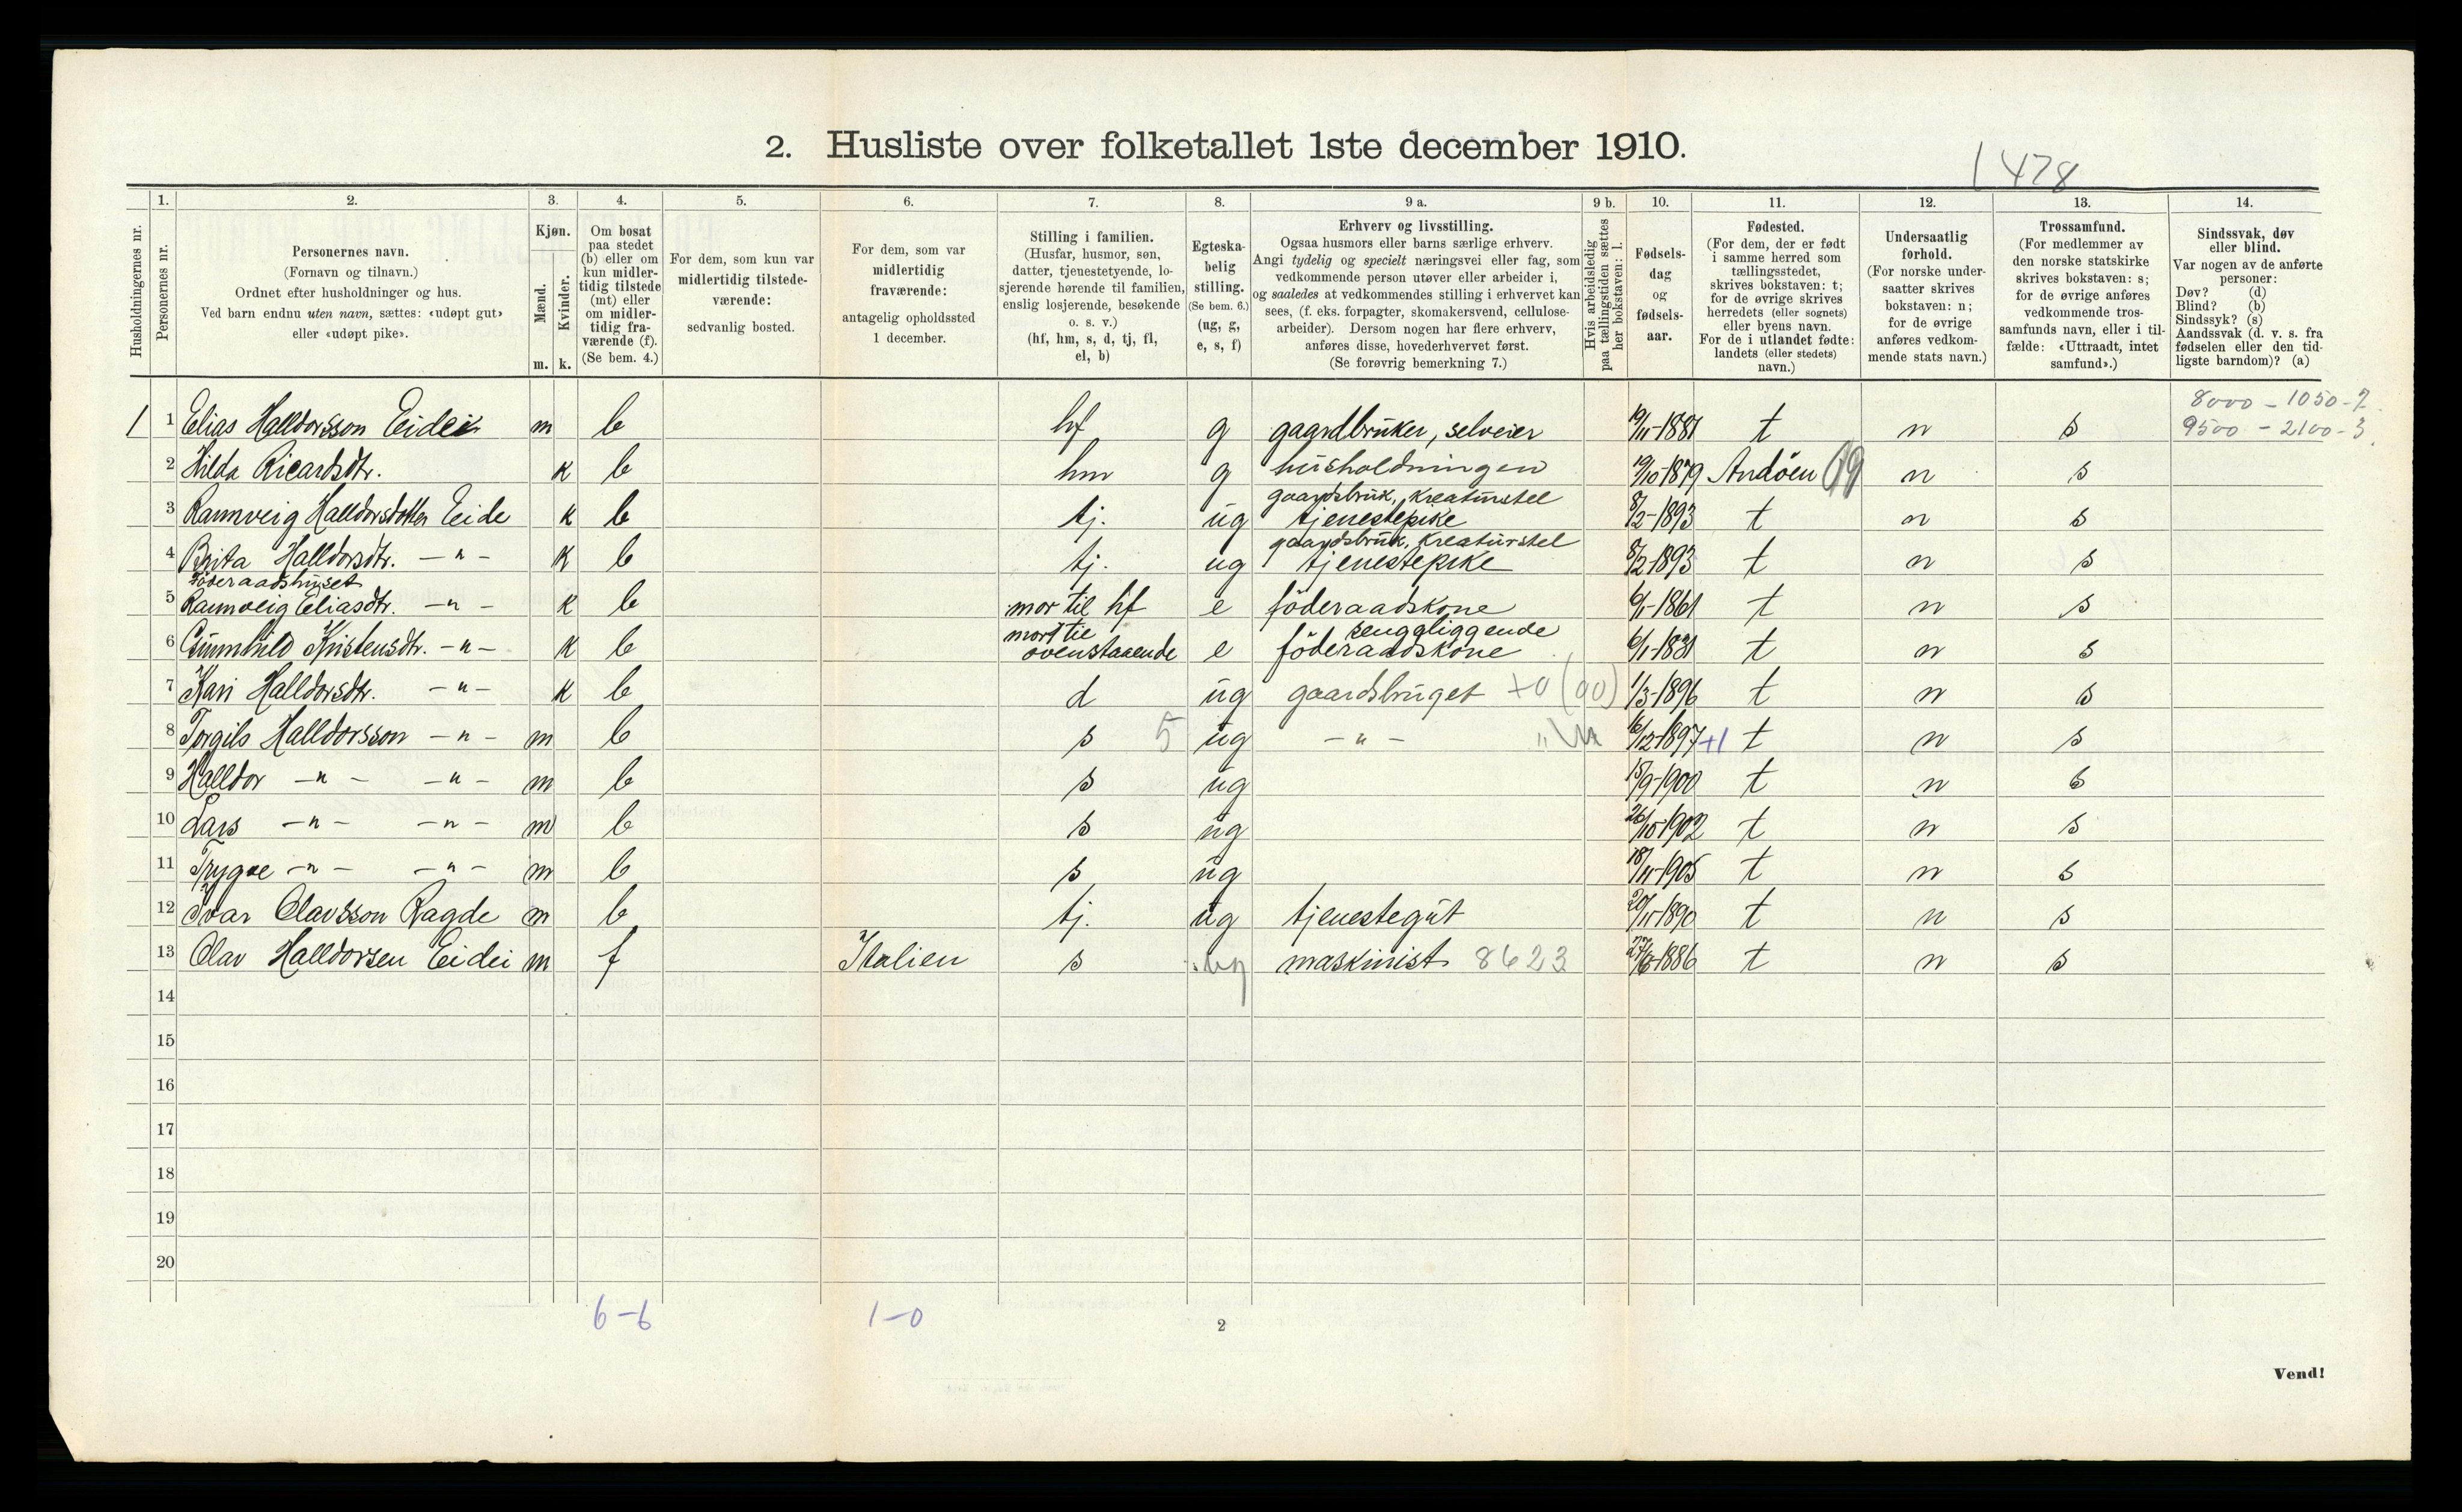 2. Husliste over folketallet 1ste december 1910.
1478
1. 2. 3. 4. 5. 6. 7. 8. 9 a. 9 b. 10. 11. 12. 13. 14.
Husholdningernes nr.
Personernes nr.
Personernes navn.
(Fornavn og tilnavn.)
Ordnet efter husholdninger og hus.
Ved barn endnu uten navn, sættes: «udøpt gut»
eller «udøpt pike».
Kjøn.
Mænd.
Kvinder.
m. k.
Om bosat
paa stedet
(b) eller om
kun midler-
tidig tilstede
(mt) eller
om midler-
tidig fra-
værende (f).
(Se bem. 4.)
For dem, som kun var
midlertidig tilstede-
værende:
sedvanlig bosted.
For dem, som var
midlertidig
fraværende:
antagelig opholdssted
1 december.
Stilling i familien.
(Husfar, husmor, søn,
datter, tjenestetyende, lo-
sjerende hørende til familien,
enslig losjerende, besøkende
o. s. v.)
(hf, hm, s, d, tj, fl,
el, b)
Egteska-
belig
stilling.
(Se bem. 6.)
(ug, g,
e, s, f)
Erhverv og livsstilling.
Ogsaa husmors eller barns særlige erhverv.
Angi tydelig og specielt næringsvei eller fag, som
vedkommende person utøver eller arbeider i,
og saaledes at vedkommendes stilling i erhvervet kan
sees, (f. eks. forpagter, skomakersvend, cellulose-
arbeider). Dersom nogen har flere erhverv,
anføres disse, hovederhvervet først.
(Se forøvrig bemerkning 7.)
Hvis arbeidsledig
paa tællingstiden sættes
her bokstaven: l.
Fødsels-
dag
og
fødsels-
aar.
Fødested.
(For dem, der er født
i samme herred som
tællingsstedet,
skrives bokstaven: t;
for de øvrige skrives
herredets (eller sognets)
eller byens navn.
For de i utlandet fødte:
landets (eller stedets)
navn.)
Undersaatlig
forhold.
(For norske under-
saatter skrives
bokstaven: n;
for de øvrige
anføres vedkom-
mende stats navn.)
Trossamfund.
(For medlemmer av
den norske statskirke
skrives bokstaven: s;
for de øvrige anføres
vedkommende tros-
samfunds navn, eller i til-
fælde: «Uttraadt, intet
samfund».)
Sindssvak, døv
eller blind.
Var nogen av de anførte
personer:
Døv? (d)
Blind? (b)
Sindssyk? (s)
Aandssvak (d. v. s. fra
fødselen eller den tid-
ligste barndom)? (a)
8000 - 1050 - 2
1 1 Elias Halldorsson Eidei m b hf g gaardbruker, selveier 19/11-1881 t n s 9500 - 2100 - 3
2 Hilda Ricardsdtr. k b hm g husholdningen 19/10-1879 Andöen n s
gaardsbruk, kreaturstel
3 Rannveig Halldorsdotter Eide k b tj. ug tjenestepike 8/2-1893 t n s
gaardsbruk, kreaturstel
4 Brita Halldorsdtr. -"- k b tj. ug tjenestepike 8/2-1893 t n s
föderaadshuset
5 Rannveig Eliasdtr. -"- k b mor til hf e föderaadskone 6/1-1861 t n s
mor til sengeliggende
6 Gunnhild Kristensdtr. -"- k b ovenstaaende e föderaadskone 6/1-1831 t n s
7 Kari Halldorsdtr. -"- k b d ug gaardsbruget +0 (00) 1/3-1896 t n s
8 Torgils Halldorsson -"- m b s 5 ug -"- 16/12-1897 +1 t n s
9 Halldor -"- -"- m b s ug 15/9-1900 t n s
10 Lars -"- -"- m b s ug 26/10-1902 t n s
11 Trygve -"- -"- m b s ug 18/11-1905 t n s
12 Ivar Olavsson Ragde m b tj. ug tjenestegut 20/11-1890 t n s
13 Olav Halldorsen Eidei m f Italien s ug maskinist 8623 27/6-1886 t n s
14
15
16
17
18
19
20
6-6 1-0
2
Vend!